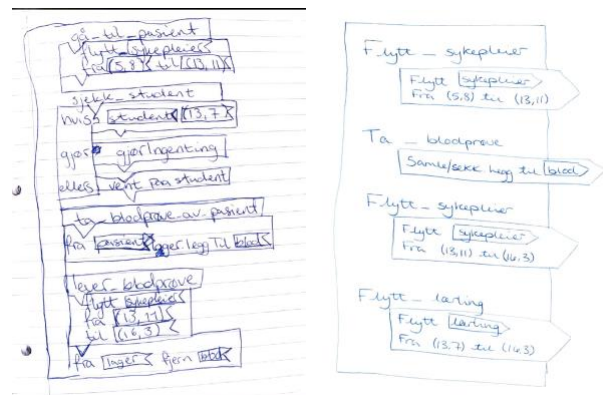 gå_til_pasient
flytt sykepleier
fra (5,8) til (13,11)
sjekk_student
hvis student (13,7)
gjør gjørIngenting
ellers vent paa student
ta_blodprøve_av_pasient
fra pasient lager.legg Til blod
lever_blodprøve
flytt sykepleier
fra (13,11)
til (16,3)
fra lager fjern blod
Flytt_sykepleier
Flytt sykepleier
Fra (5,8) til (13,11)
Ta_blodprøve
Samle/sekk legg til blod
Flytt_sykepleier
Flytt sykepleier
Fra (13,11) til (16,3)
Flytt_lærling
Flytt lærling
Fra (13,7) til (16,3)